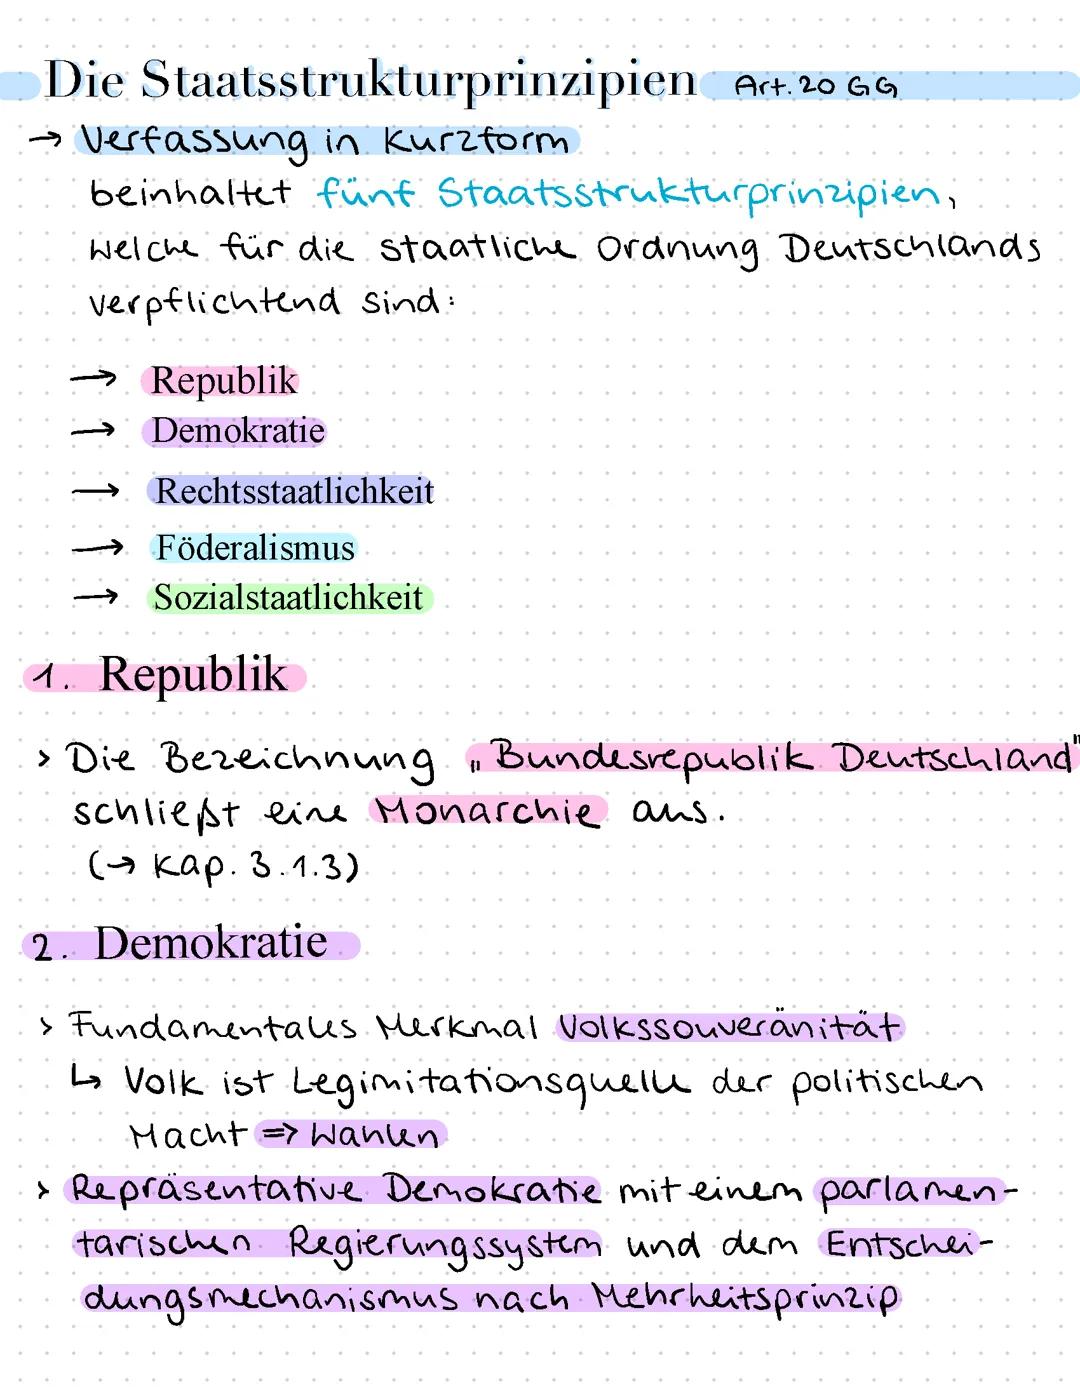 Die Staatsstrukturprinzipien Art. 20 GG
→ Verfassung in Kurzform
beinhaltet fünf Staatsstrukturprinzipien,
welche für die staatliche Ordnung Deutschlands
verpflichtend sind:
→ Republik
→ Demokratie
→ Rechtsstaatlichkeit
→ Föderalismus
→ Sozialstaatlichkeit
1. Republik
> Die Bezeichnung „Bundesrepublik Deutschland"
schließt eine Monarchie aus.
(→ Kap. 3.1.3)
2. Demokratie
> Fundamentales Merkmal Volkssouveränität
↳ Volk ist Legimitationsquelle der politischen
Macht => Wahlen
> Repräsentative Demokratie mit einem parlamen-
tarischen Regierungssystem und dem Entschei-
dungsmechanismus nach Mehrheitsprinzip